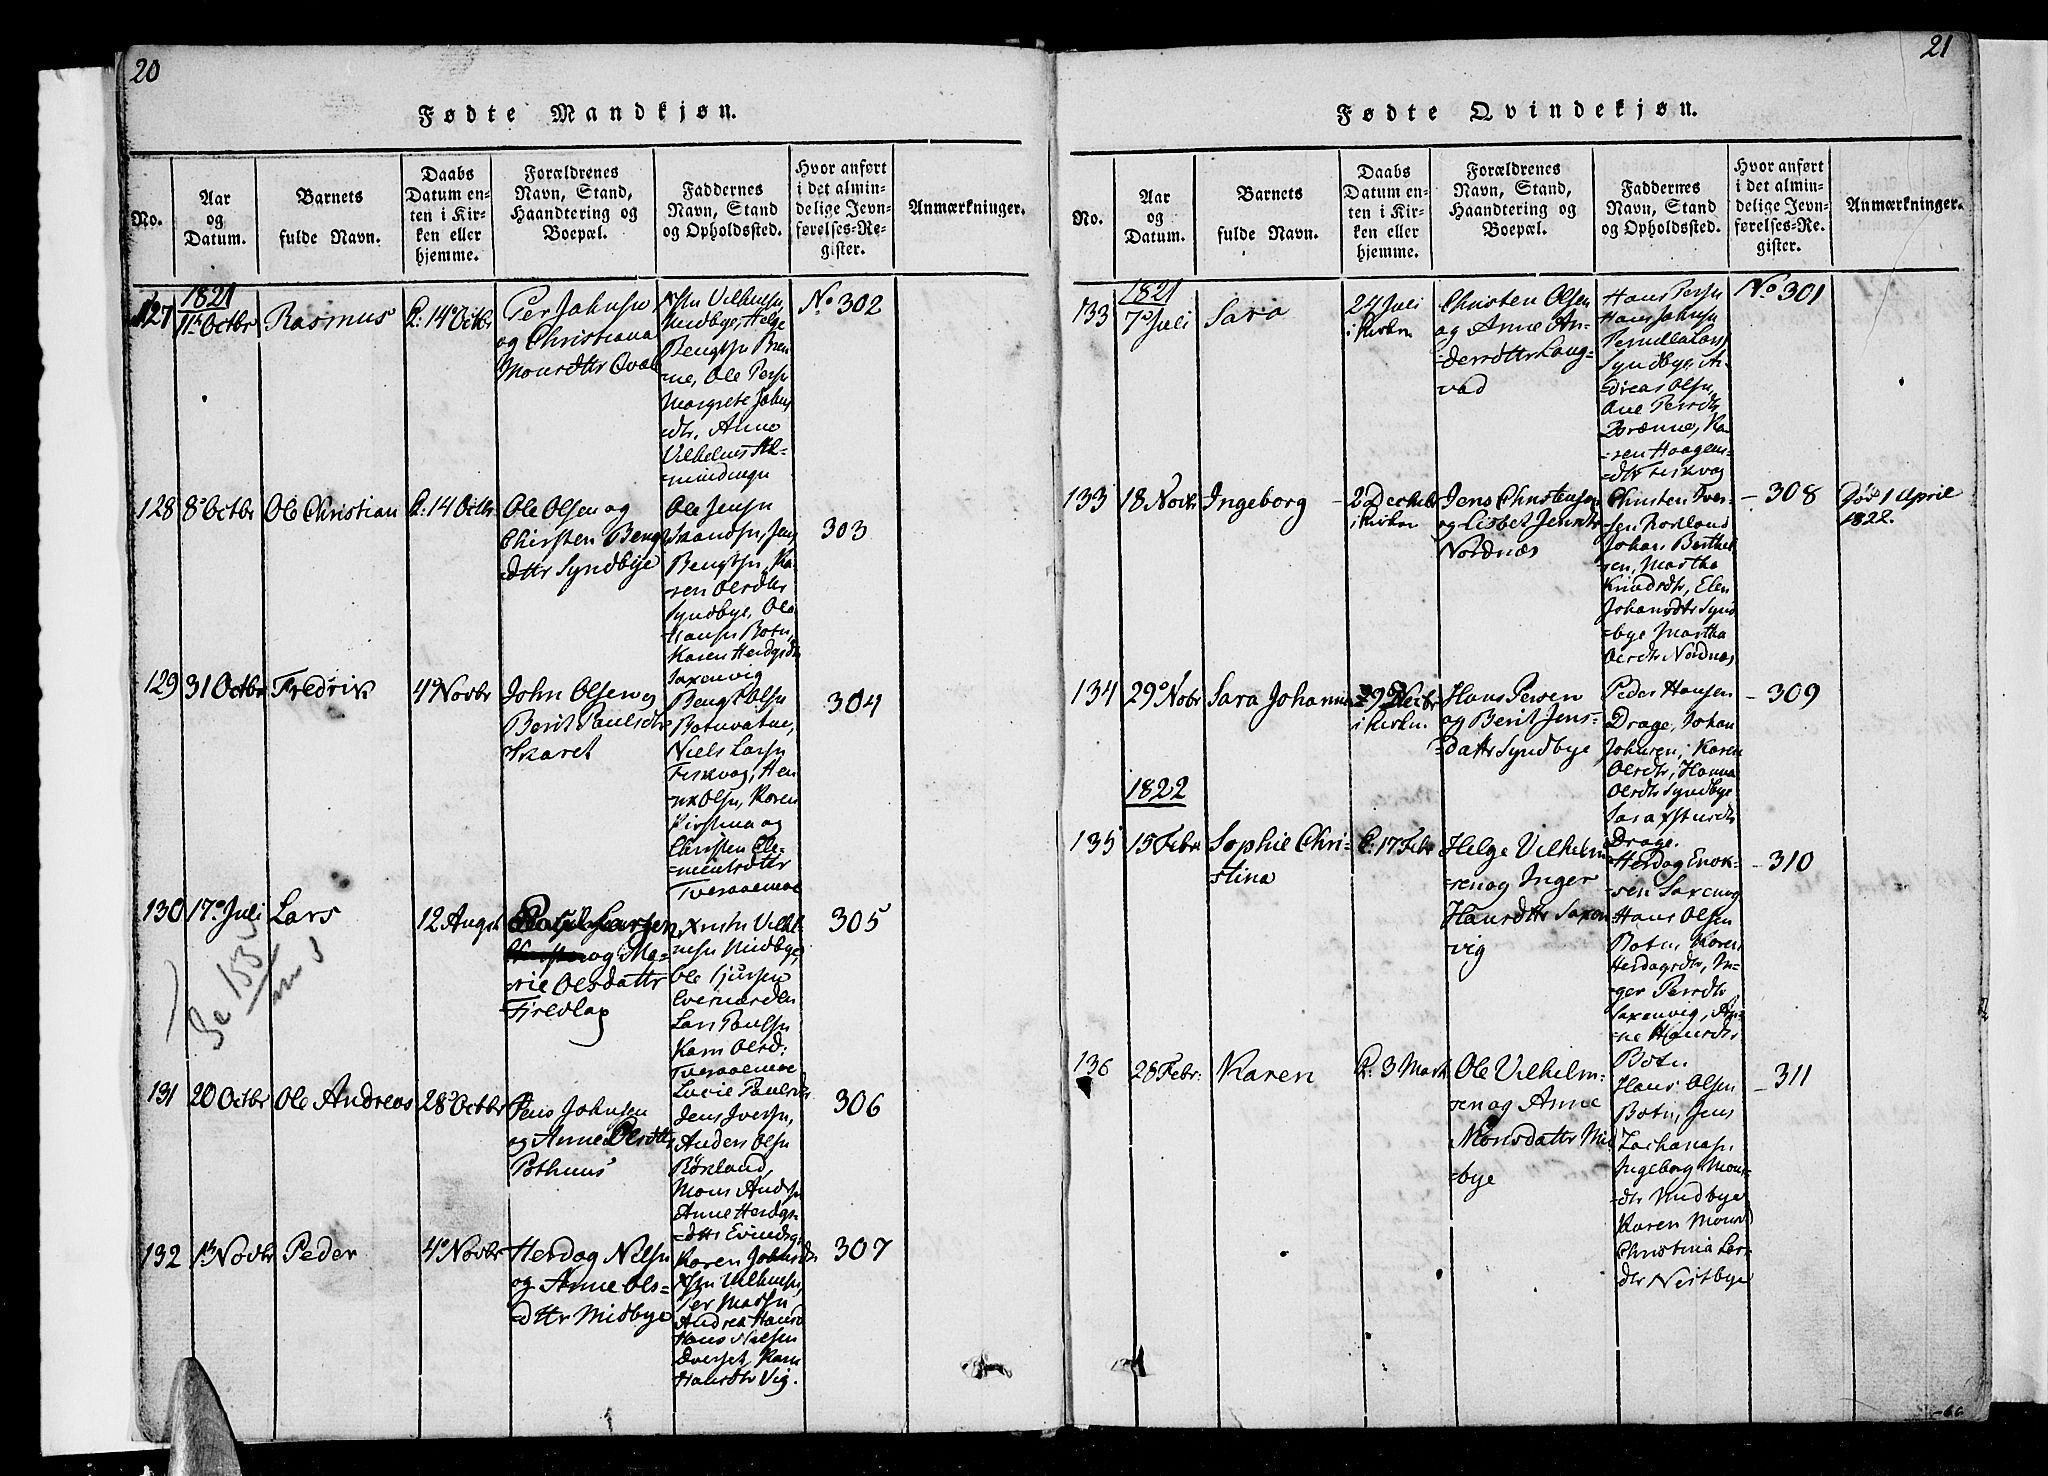 20
Fødte Mandkjøn.
No.
Aar
og
Datum.
Barnets
fulde Navn.
Daabs
Datum en-
ten i Kir-
ken eller
hjemme.
Forældrenes
Navn, Stand,
Haandtering og
Boepæl.
Faddernes
Navn, Stand
og Opholdssted.
Hvor anført
i det almin-
delige Jevn-
førelses-Re-
gister.
Anmærkninger.
1821
127
11te Octbr
Rasmus
14 Octbr
Per Johnsen
og Christiana
Monsdttr Qval
Vilhelmsn
Midbye, Helge
Bengtsn Bren-
ne, Ole Persn
Margrete Johns
dtr, Anne
Vilhelms Al-
mindingn
No 302
128
8de Octbr
Ole Christian
14 Octbr
Ole Olsen og
Chirsten Beng
dttr Syndbye
Ole Jensn
Strandsn, Jens
Bengtsn, Ka-
ren Olsdttr
Syndbye, Ole
Hansn Botn,
Karen Herdgsdtr
Saxenvig
303
129
31 Octbr
Fredrik
4de Novbr
John Olsen og
Berit Paulsdtr
Skaret
Bengt Olsn
Botnvatne,
Niels Larsn
Fiskvag, Hen-
rik Olsn, Karen
Kirstina og
Chirsten Cle-
mentsdttr
Tveraaemoe
304
130
17de Juli
Lars
12 Augst
Larsen
og Ma-
rie Olsdattr
Fjredlag
Vilhel-
msn Midbye,
Ole Sjursen
Evensærden
Lars Paulsn
Karn Olsd:
Tveraaemoe
Lucie Paulsdtr
305
Se 153
131
20 Octbr
Ole Andreas
28 Octbr
Jens Johnsen
og Anne Olsdttr
Pothuus
Jens Iversn,
Anders Olsn
Røkland,
Mons Andersn
Anne Herdgs-
dttr Evindsg:
Karen Johnsdtr
306
132
1te Novbr
Peder
4de Novbr
Herdag Nilsn
og Anne Ols-
dttr Midbye
Vilhelmsn,
Per Madsn
Andrea Hansd
Hans Nielsn
Dverset, Karn
Hansdtr Vig.
307
21
Fødte Qvindekjøn.
No.
Aar
og
Datum.
Barnets
fulde Navn.
Daabs
Datum en-
ten i Kir-
ken eller
hjemme.
Forældrenes
Navn, Stand,
Haandtering og
Boepæl.
Faddernes
Navn, Stand
og Opholdssted.
Hvor anført
i det almin-
delige Jevn-
førelses-Re-
gister.
Anmærkninger.
1821
133
7de Juli
Sara
24 Juli
i Kirkn
Christen Olsen
og Anne An-
dersdttr Lang-
vad
Hans Persn
Hans Johnsn
Pernilla Lars
Syndbye, An-
dreas Olsn,
Ane Persdtr
Brænne, Ka-
ren Haagens-
dtr Fiskvag
No 301
133
18 Novbr
Ingeborg
2 Decembr
i Kirkn
Jens Christensen
og Lisbet Jensdtr
Nordnæs
Christen Iver-
sen Rokland
Johan Berthel
sen, Martha
Knudsdtr, Elen
Johansdttr Synd
bye Martha
Olsdtr Nordnæs
- 308
Død 1 April
1822.
134
29de Nobr
Sara Johanna
29
i Kirkn.
Hans Persen
og Berit Jens-
dattr Syndbye
Peder Hansen
Drage, Johan
Johnsen, Karen
Olsdtr, Hanna
Olsdtr Syndbye
Sara
Drage.
- 309
1822
135
15 Febr
Sophie Chri-
stina
17 Febr
Helge Vilhelm
sen og Inger
Hansdttr Saxen
vig
Herdag Enok-
sen Saxenvig
Hans Olsen
Botn, Karen
Herdagsdtr, In-
ger Persdtr
Saxenvig, An-
ne Hansdtr
Botn
- 310
136
28 Febr:
Karen
3 Marts
Ole Vilhelm-
sen og Anne
Monsdattr Mid
bye
Hans Olsen
Botn, Jens
Zachariasn
Ingeborg Mons-
dtr Midbye
Karen Monsd
Christina Lars-
dtr Nestbye
- 311